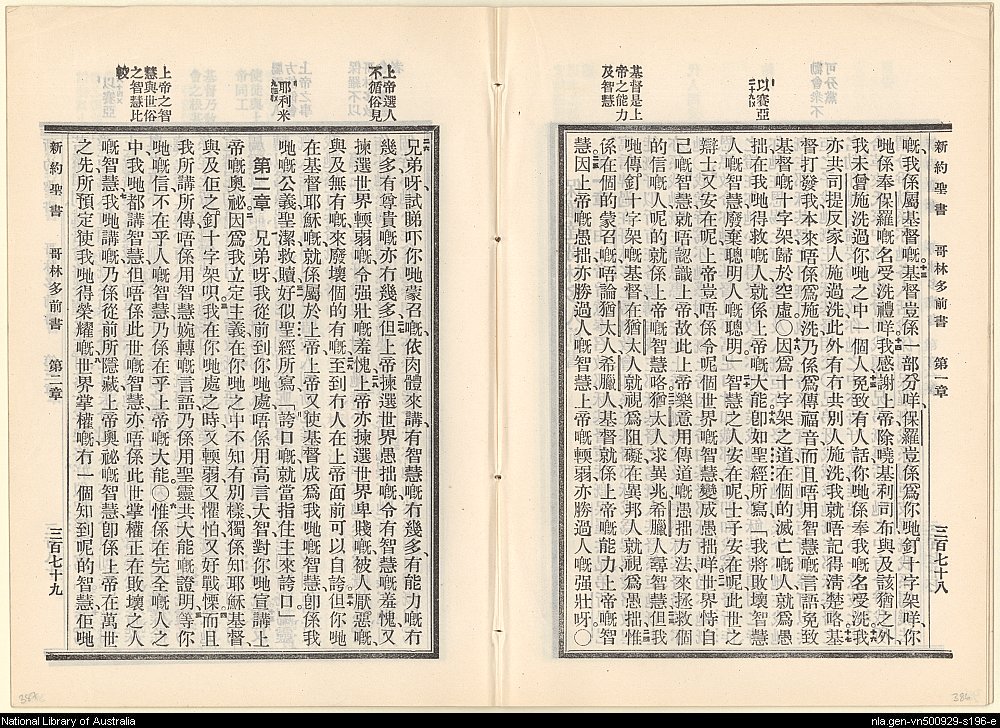 以賽亞
二十九〇十四
基督是上
帝之能力
及智慧
新約聖書 哥林多前書 第一章 三百七十八
嘅我係屬基督嘅基督豈係一部分咩保羅豈係爲你哋釘十字架咩你
哋係奉保羅嘅名受洗禮咩我感謝上帝除嘵基利司布與及該猶之外
我未曾施洗過你哋之中一個人免致有人話你哋係奉我嘅名受洗我
亦共司提反家人施洗過此外有冇共別人施洗我就唔記得淸楚咯基
督打發我本來唔係爲施洗乃係爲傳福音而且唔用智慧嘅言語免致
基督嘅十字架歸於空虛〇因爲十字架之道在個的滅亡嘅人就爲愚
拙在我哋得救嘅人就係上帝嘅大能卽如聖經所寫「我將敗壞智慧
人嘅智慧廢棄聰明人嘅聰明」智慧之人安在呢士子安在呢此世之
辯士又安在呢上帝豈唔係令呢個世界嘅智慧變成愚拙咩世界恃自
己嘅智慧就唔認識上帝故此上帝樂意用傳道嘅愚拙方法來拯救個
的信嘅人呢的就係上帝嘅智慧咯猶太人求異兆希臘人尋智慧但我
哋傳釘十字架嘅基督在猶太人就視爲阻礙在異邦人就視爲愚拙惟
係在個的蒙召嘅唔論猶太人希臘人基督就係上帝嘅能力上帝嘅智
慧因上帝嘅愚拙亦勝過人嘅智慧上帝嘅輭弱亦勝過人嘅强壯呀〇
上帝選人
不循俗見
耶利米
上帝之智
慧與世俗
之智慧比
較
兄弟呀試睇吓你哋蒙召嘅依肉體來講有智慧嘅有幾多有能力嘅有
幾多有尊貴嘅亦有幾多但上帝揀選世界愚拙嘅令有智慧嘅羞愧又
揀選世界輭弱嘅令强壯嘅羞愧上帝亦揀選世界卑賤嘅被人厭惡嘅
與及無有嘅來廢壞個的有嘅至到冇人在上帝面前可以自誇但你哋
在基督耶穌嘅就係屬於上帝上帝又使基督成爲我哋嘅智慧卽係我
哋嘅公義聖潔救贖好似聖經所寫「誇口嘅就當指住主來誇口」
第二章 兄弟呀我從前到你哋處唔係用高言大智對你哋宣講上
帝嘅奧祕因爲我立定主義在你哋之中不知有別樣獨係知耶穌基督
與及佢之釘十字架呮我在你哋處之時又輭弱又懼怕又好戰慄而且
我所講所傳唔係用智慧婉轉嘅言語乃係用聖靈共大能嘅證明等你
哋嘅信不在乎人嘅智慧乃係在乎上帝嘅大能〇惟係在完全嘅人之
中我哋都講智慧但唔係此世嘅智慧亦唔係此世掌權正在敗壞之人
嘅智慧我哋講嘅乃係從前所隱藏上帝奧祕嘅智慧卽係上帝在萬世
之先所預定使我哋得榮耀嘅世界掌權嘅冇一個知到呢的智慧佢哋
新約聖書 哥林多前書 第二章 三百七十九
386
National Library of Australia
nla.gen-vn500929-s196-e